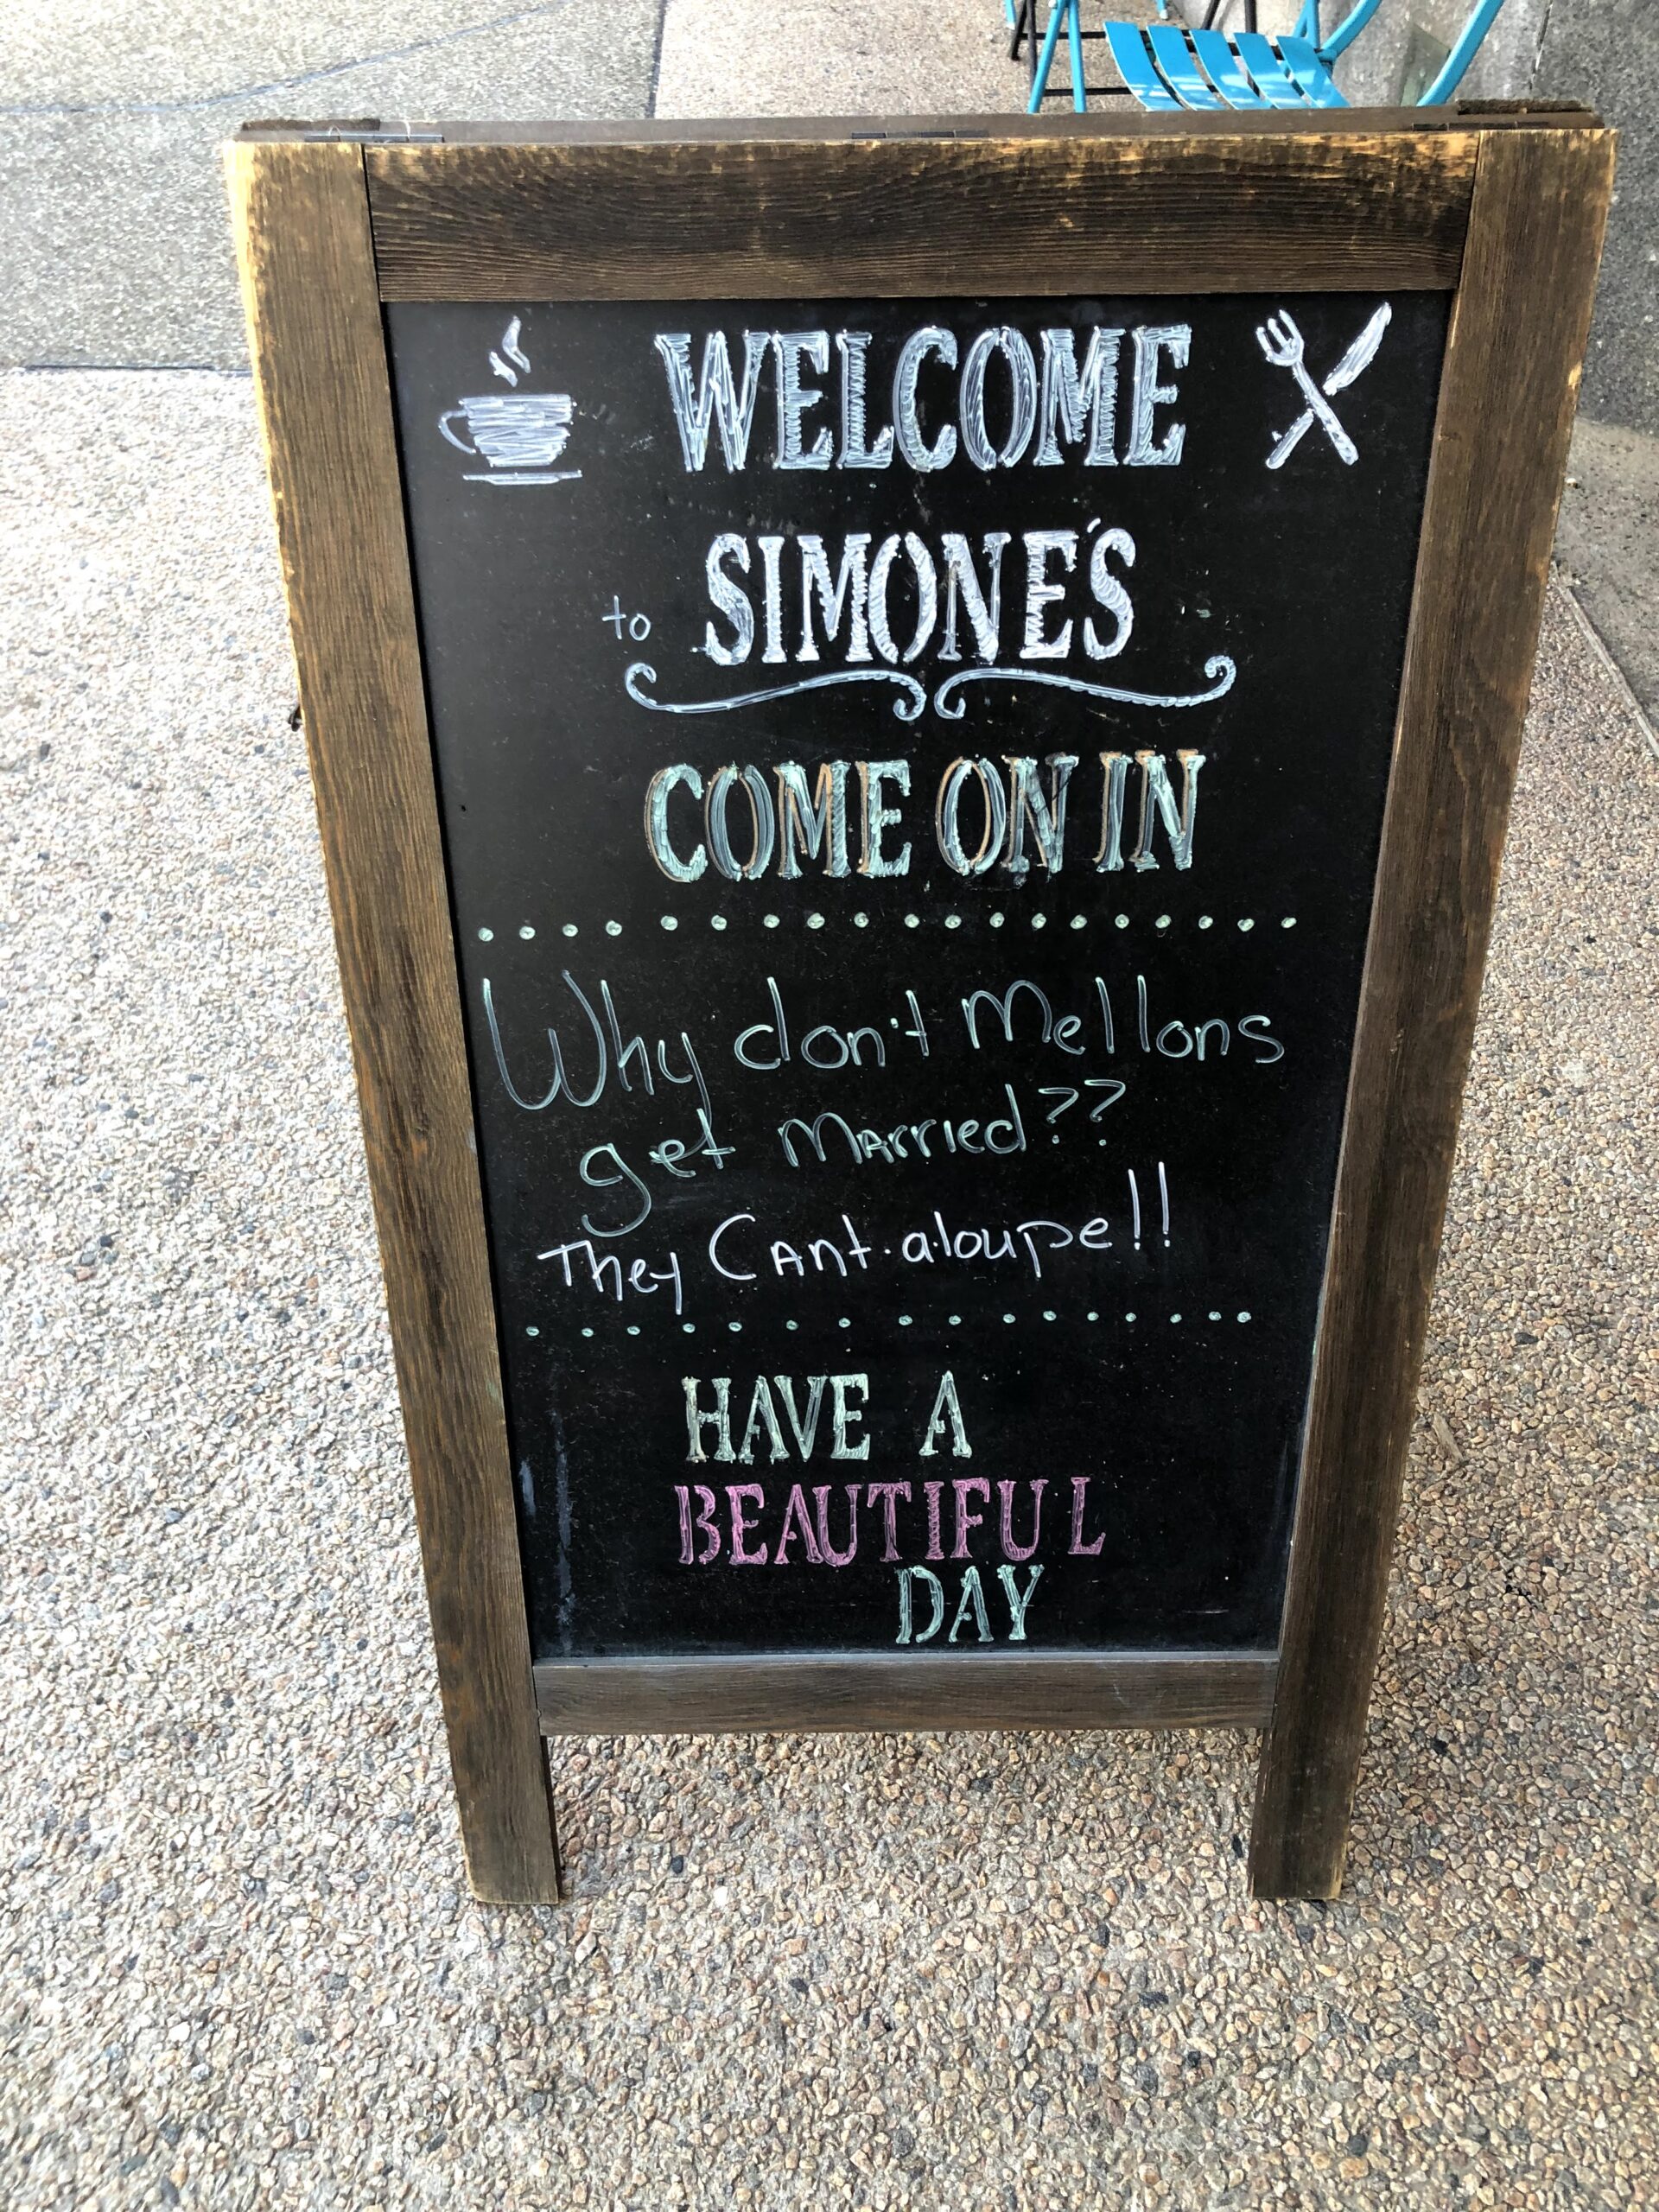 WELCOME
to SIMONE'S
COME ON IN
Why don't Mellons
get Married??
They CAnt·a·loupe!!
HAVE A
BEAUTIFUL
DAY